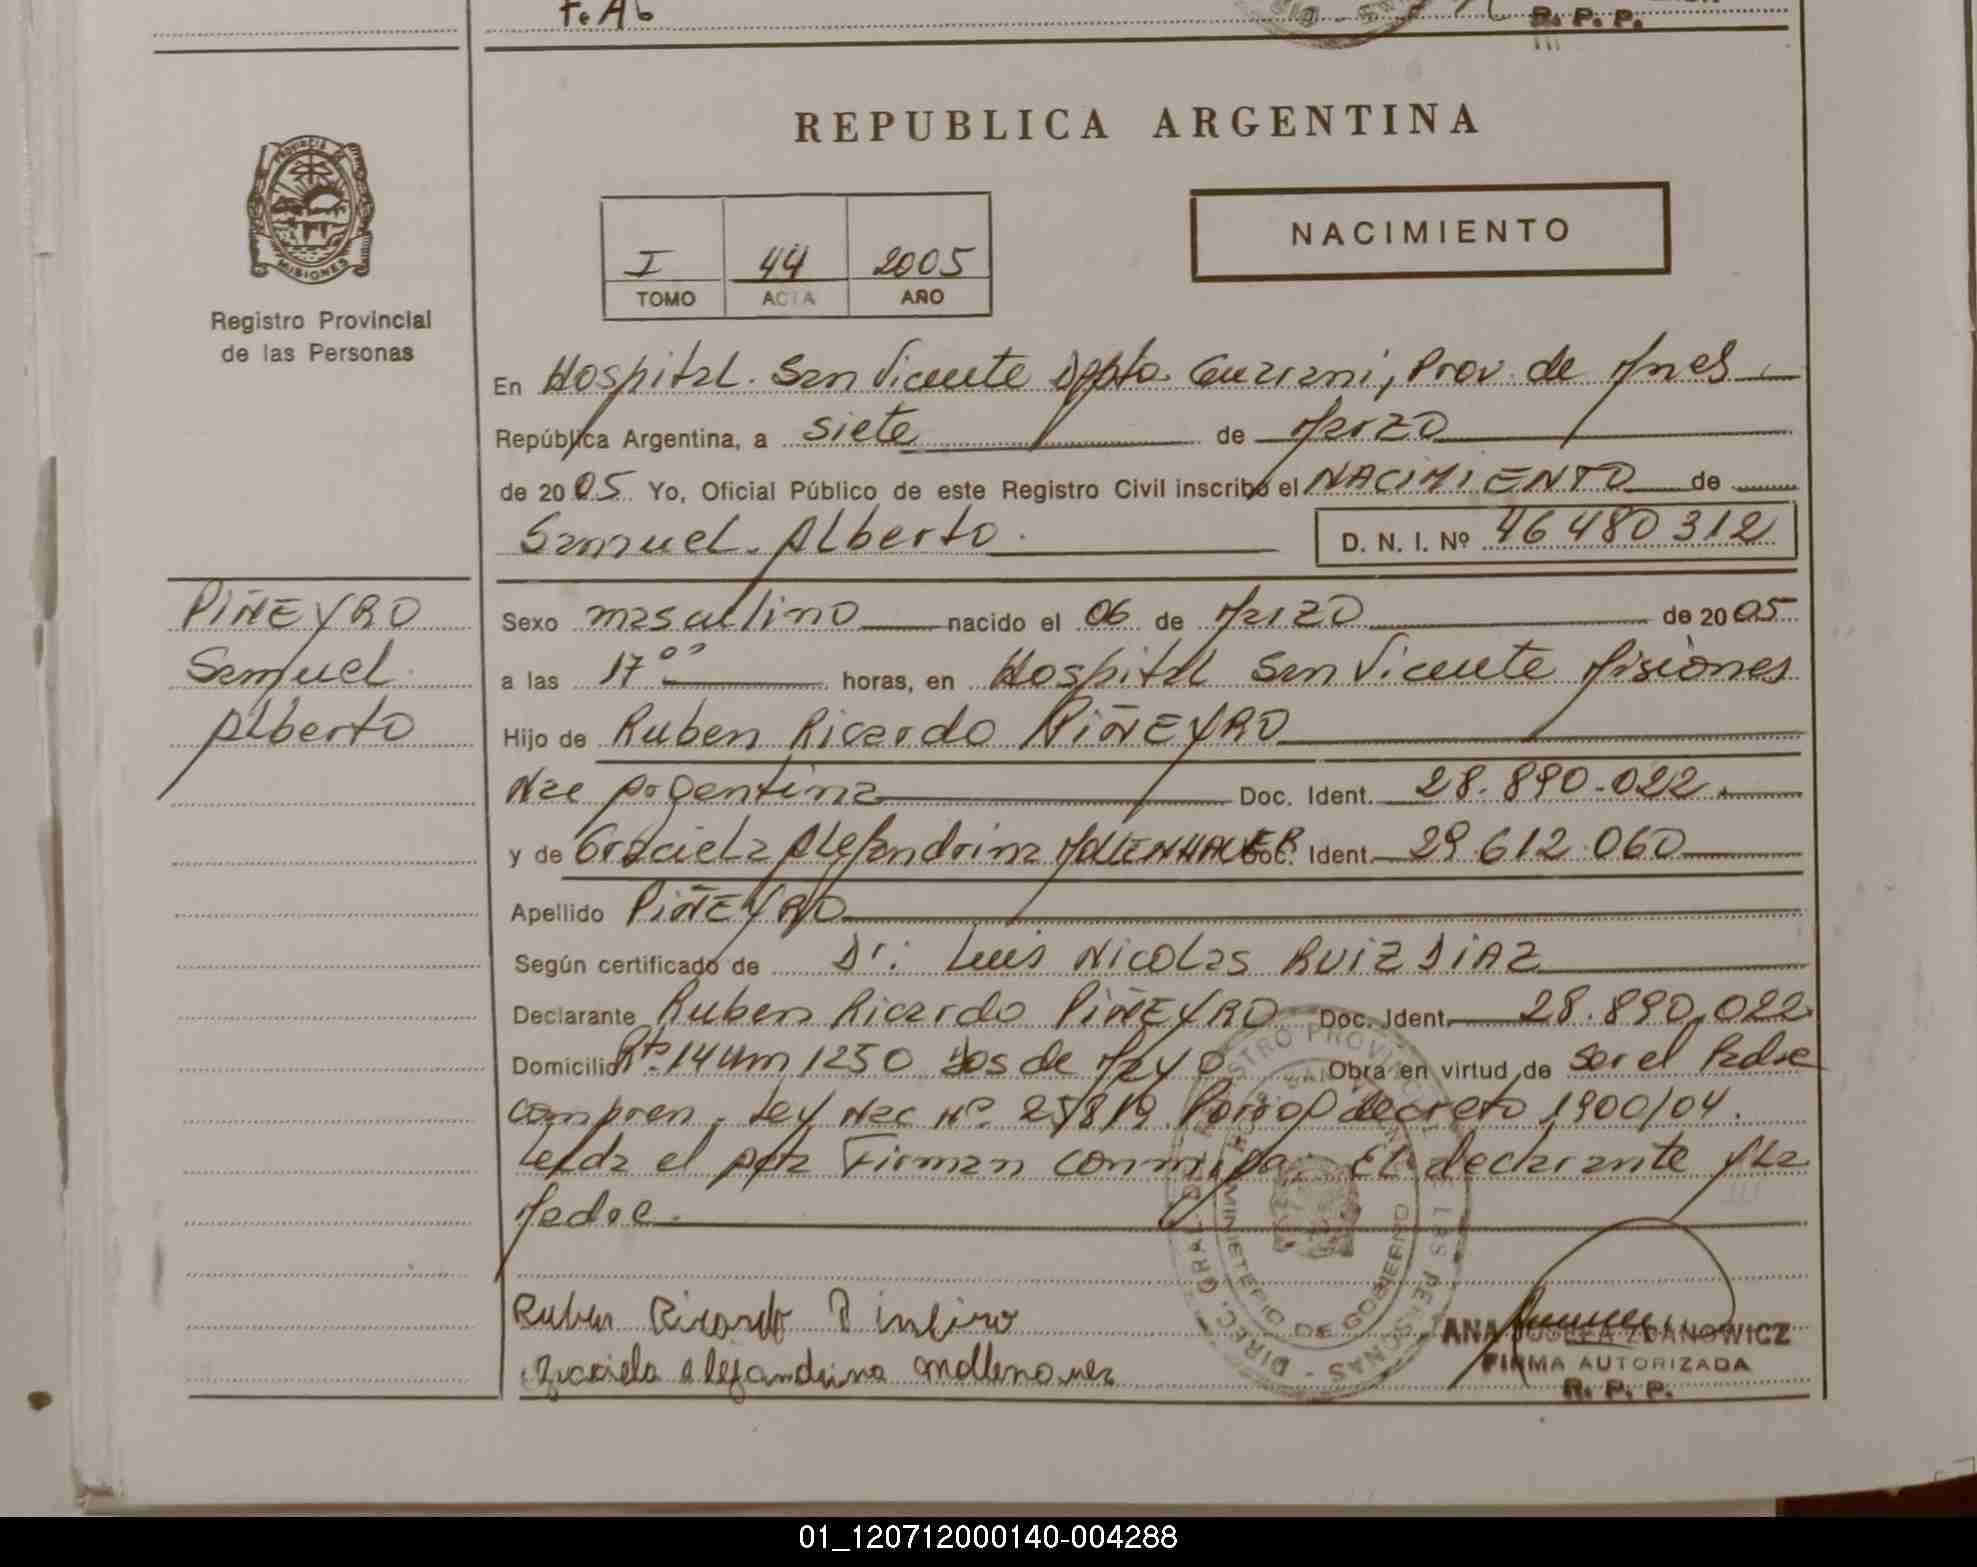 F. Ab
R. P. P.
REPUBLICA ARGENTINA
PROVINCIA DE
MISIONES
Registro Provincial
de las Personas
NACIMIENTO
I 44 2005
TOMO ACTA AÑO
En Hospital. San Vicente Dpto. Guarani, Prov. de Mnes
República Argentina, a siete de Marzo
de 2005 Yo, Oficial Público de este Registro Civil inscribo el NACIMIENTO de
Samuel Alberto D. N. I. Nº 46480312
PIÑEYRO
Samuel
Alberto
Sexo masculino nacido el 06 de Marzo de 2005
a las 17 00 horas, en Hospital San Vicente Misiones
Hijo de Ruben Ricardo PIÑEYRO
Nac Argentina Doc. Ident. 28.890.022
y de Graciela Alejandrina MOLLENHAUER Doc. Ident. 29.612.060
Apellido PIÑEYRO
Según certificado de Dr: Luis Nicolas RUIZ DIAZ
Declarante Ruben Ricardo PIÑEYRO Doc. Ident. 28.890.022
Domicilio Rta. 14 Km 1250 Dos de Mayo Obra en virtud de ser el Padre
Compren. Ley Nac Nº 25819 Porrog decreto 1900/04.
Leida el acta Firman conmigo. El declarante y La
Madre.
Ruben Ricardo Piñeiro
Graciela alejandrina mollenauer
ANA ZDANOWICZ
FIRMA AUTORIZADA
R. P. P.
DIREC. GRAL. DEL REGISTRO PROVINCIAL DE LAS PERSONAS
MINISTERIO DE GOBIERNO
01_120712000140-004288